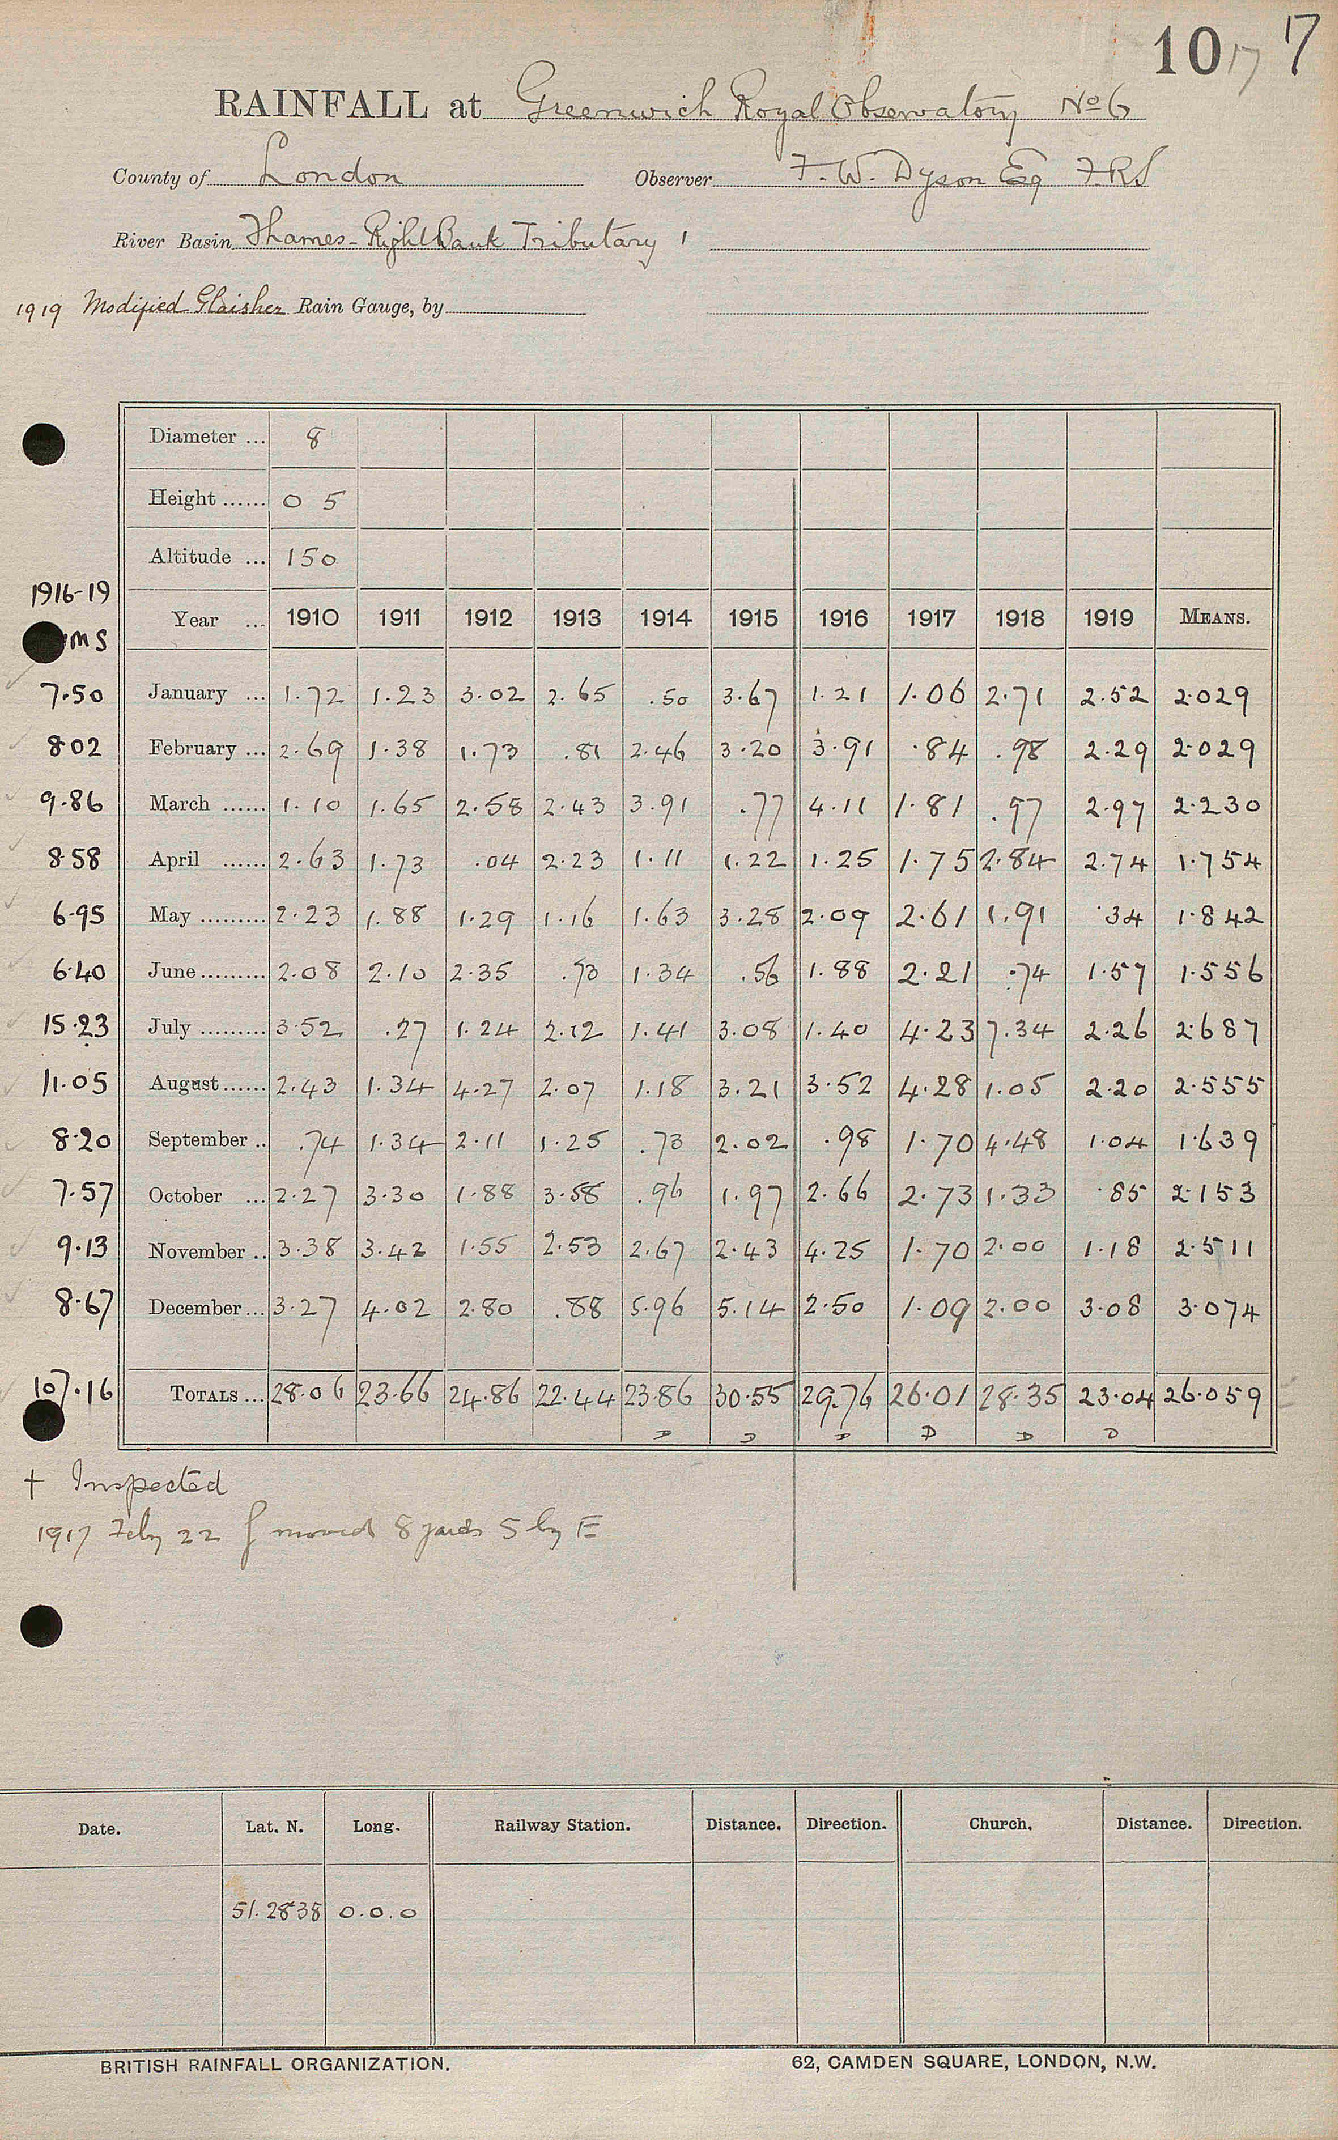 10 17 17
RAINFALL at Greenwich Royal Observatory No 6
County of London Observer F. W. Dyson Esq F.R.S
River Basin Thames - Right Bank Tributary 1
1919 Modified Glaisher Rain Gauge, by
Diameter ... 8
Height ...... 0 5
Altitude ... 150
1916-19
Year ... 1910 1911 1912 1913 1914 1915 1916 1917 1918 1919 MEANS.
7.50 January ... 1.72 1.23 3.02 2.65 .50 3.67 1.21 1.06 2.71 2.52 2.029
8.02 February ... 2.69 1.38 1.73 .81 2.46 3.20 3.91 .84 .98 2.29 2.029
9.86 March ...... 1.10 1.65 2.58 2.43 3.91 .77 4.11 1.81 .97 2.97 2.230
8.58 April ...... 2.63 1.73 .04 2.23 1.11 1.22 1.25 1.75 2.84 2.74 1.754
6.95 May ......... 2.23 1.88 1.29 1.16 1.63 3.28 2.09 2.61 1.91 .34 1.842
6.40 June ......... 2.08 2.10 2.35 .73 1.34 .56 1.88 2.21 .74 1.57 1.556
15.23 July ......... 3.52 .27 1.24 2.12 1.41 3.08 1.40 4.23 7.34 2.26 2.687
11.05 August ...... 2.43 1.34 4.27 2.07 1.18 3.21 3.52 4.28 1.05 2.20 2.555
8.20 September .. .74 1.34 2.11 1.25 .73 2.02 .98 1.70 4.48 1.04 1.639
7.57 October ... 2.27 3.30 1.88 3.58 .96 1.97 2.66 2.73 1.33 .85 2.153
9.13 November .. 3.38 3.42 1.55 2.53 2.67 2.43 4.25 1.70 2.00 1.18 2.511
8.67 December ... 3.27 4.02 2.80 .88 5.96 5.14 2.50 1.09 2.00 3.08 3.074
107.16 TOTALS ... 28.06 23.66 24.86 22.44 23.86 30.55 29.76 26.01 28.35 23.04 26.059
D D D D D D
† Inspected
1917 Feby 22 moved 8 yards S by E
Date. Lat. N. Long. Railway Station. Distance. Direction. Church. Distance. Direction.
51.28 38 0.0.0
BRITISH RAINFALL ORGANIZATION. 62, CAMDEN SQUARE, LONDON, N.W.